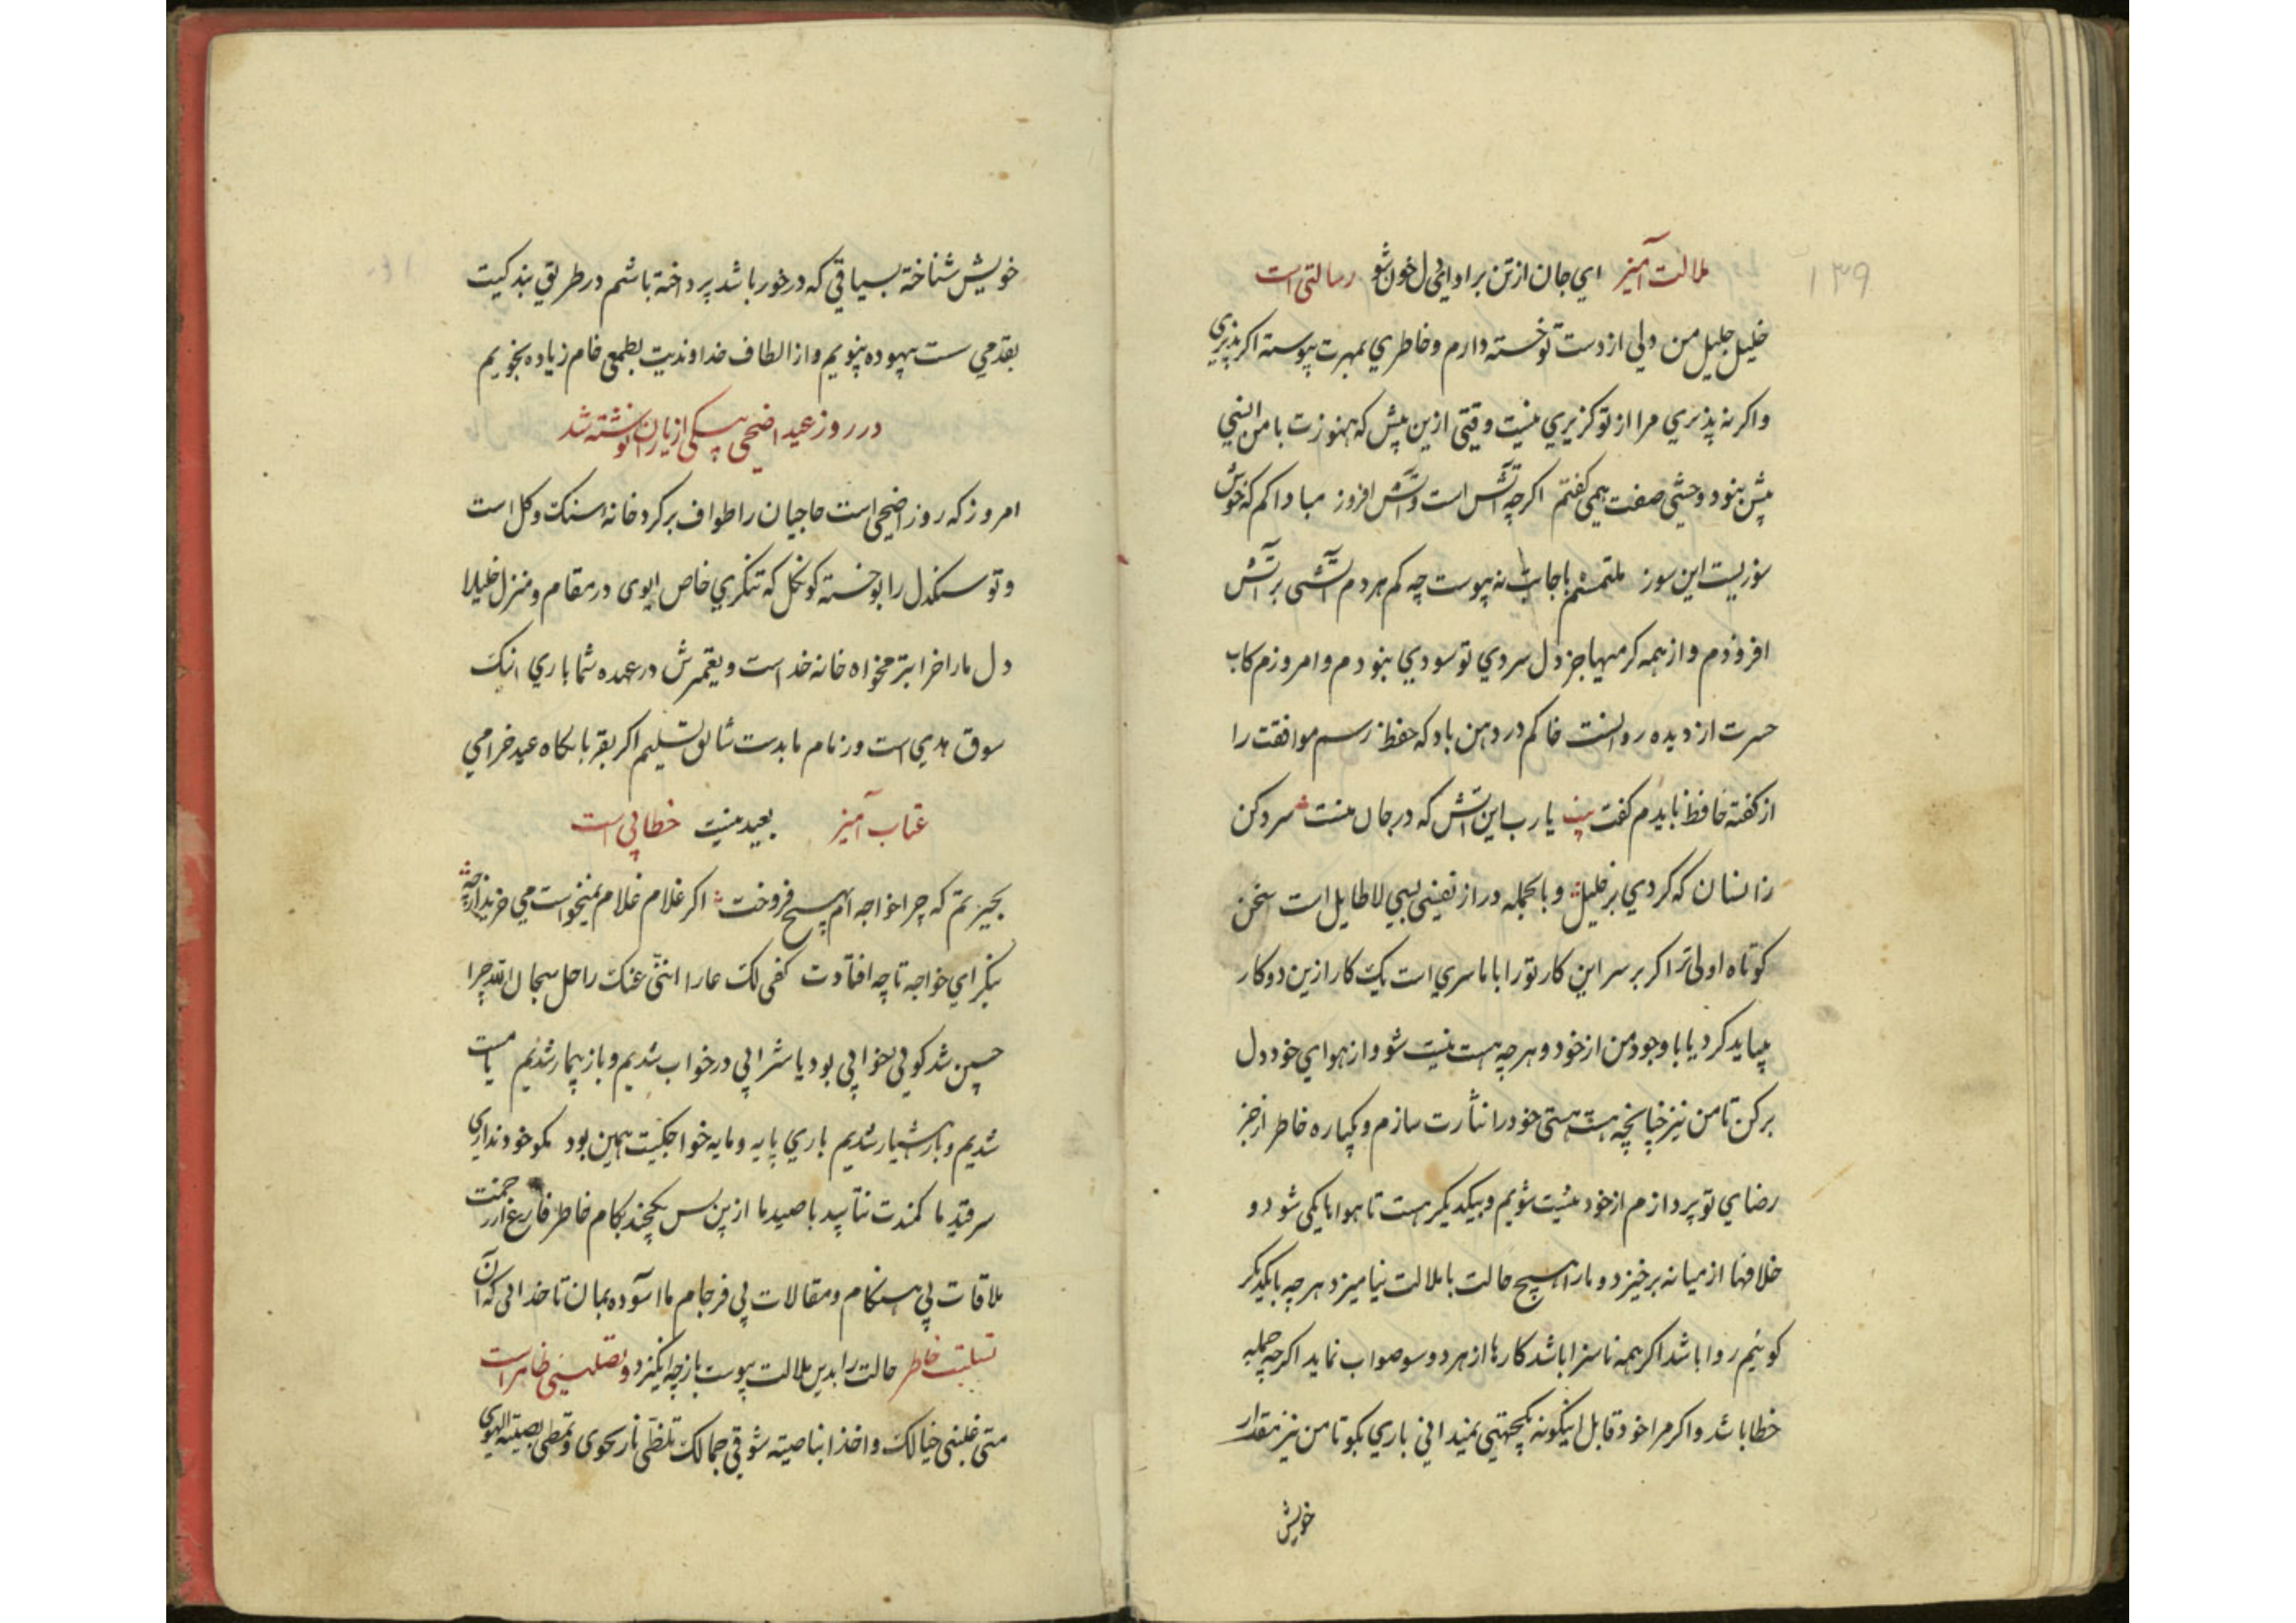 ۱۳۹
ملالت آمیز ای جان از تن برا و ای دل خون شو رسالتی است
خلیل جلیل من دلی از دست تو خسته دارم و خاطري بمهرت پیوسته اکر بپذیري
واکر نه پذیري مرا از تو کزیري نیست وقتی ازین پیش که هنوزت با من انسی
پیش بنود وحشی صفت همی کفتم اکرچه آتش است و آتش افروز مبادا کم که خوش
سوزیست این سوز ملتمسم باجابت نه پیوست چه کم هردم آتشی بر آتش
افروزدم و از همه کرمیها جز دل سردي تو سودي بنودم و امروزم کاب
حسرت از دیده روانست خاکم در دهن باد که حفظ رسم موافقت را
از کفته حافظ بایدم کفت بیت یا رب این آتش که در جان منست سرد کن
زانسان که کردي بر خلیل و بالجمله دراز نفسی لا طایل است سخن
کوتاه اولی تر اکر بر سر این کار تو را با ما سري است یک کار ازین دو کار
بباید کرد یا با وجود من از خود و هرچه هست نیست شو و از هواي خود دل
برکن تا من نیز چنانچه هست هستی خود را نثارت سازم و یکباره خاطر از جز
رضاي تو پردازم از خود نیست شویم و بیکدیکر هست تا هواها یکی شود و
خلافها از میانه برخیزد و ما را هیچ حالت با ملالت نیامیزد هرچه بایکدیکر
کوئیم روا باشد اکر همه ناسزا باشد کارها از هر دو سو صواب نماید اکرچه جمله
خطا باشد و اکر مرا خود قابل اینکونه یکجهتی نمیدانی باري بکو تا من نیز مقدار
خویش
خویش شناخته بسیاقی که در خور باشد پرداخته باشم در طریق بندکیت
بقدمی سست بیهوده نپویم و از الطاف خداوندیت بطمع خام زیاده نجویم
در روز عید اضحی بیکی از یاران نوشته شد
امروز که روز اضحی است حاجیان را طواف بر کرد خانه سنک و کل است
و تو سنکدل را بو خسته کونکل که تنکري خاص ایوی در مقام و منزل خلیلا
دل ما را خرابتر مخواه خانه خداست و تعمیرش در عهده شما باري اینک
سوق هدي است و زمام ما بدست شایق تسلیم اکر بقربانکاه عید خرامی
عتاب آمیز بعید نیست خطابی است
بحیرتم که چرا خواجه ام بهیچ فروخت اکر غلام غلام نمیخواست می خرید ارچه
بنکر ای خواجه تا چه افتادت کفی لک عارا اننی عنک راحل سبحان الله چرا
چنین شد کوئی خوابی بود یا شرابی در خواب شدیم و باز بیدار شدیم یا مست
شدیم و باز هشیار شدیم باري پایه و مایه خواجکیت همین بود مکو خود نداري
سر قید ما کمندت نتابید با صید ما ازین پس یکچند بکام خاطر فارغ از زحمت
ملاقات بی هنکام و مقالات بی فرجام ما آسوده بمان تا خدائی که آن
حالت را بدین ملالت پیوست باز چه انکیزد تسلیت خاطر و تصلیتی ظاهر است
متی غلبنی خیالک و اخذ بناصیته شوقی جمالک تلظی نار الجوی و تمطی بصیته الهوی